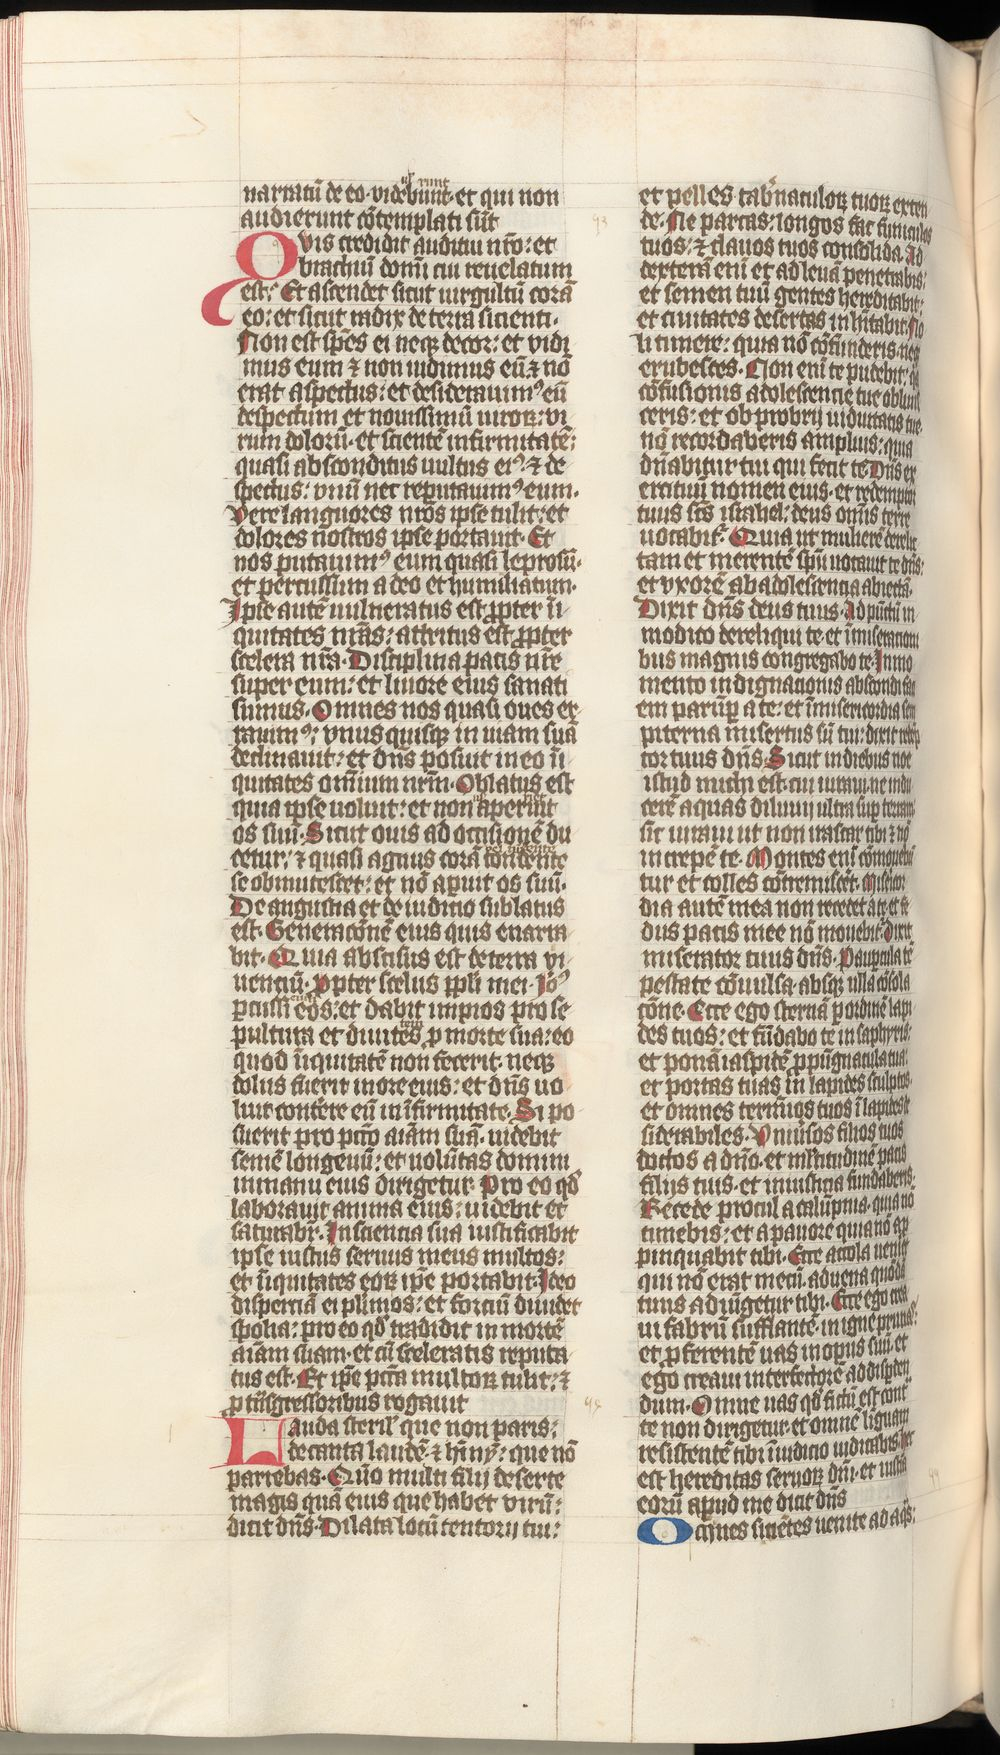 ul̕ runt
narratū de eo· videbunt· et qui non
audierunt cōtemplati sūt
93
Qvis credidit auditui nr̄o: et
brachiū domī cui reuelatum
est: Et ascendet sicut uirgultū corā
eo: et sicut radix de terra sicienti·
Non est sp̄es ei neqꝫ decor: et vidi
mus eum ⁊ non uidimus eū: ⁊ nō
erat aspectus: et desiderauimꝰ eū
despectum et nouissimū uiroꝝ: vi
rum dolorū· et scientē infirmitatē:
quasi absconditus uultus eiꝰ: ⁊ de
spectus: vnū nec reputauimꝰ eum·
Vere languores nr̄os ipse tulit: et
dolores nostros ipse portauit· Et
nos putauimꝰ eum quasi leprosū·
et percussum a deo et humiliatum·
Ipse autē uulneratus est ꝓpter ī
quitates nr̄as: attritus est ꝓpter
scelera nr̄a· Disciplina pacis nr̄e
super eum: et liuore eius sanati
sumus· Omnes nos quasi oues er
rauimꝰ: vnus quisqꝫ in uiam suā
declinauit: et dn̄s posuit in eo ī
quitates omīum nrm̄· Oblatus est
quia ipse uoluit: et non aperuit
os suū· Sicut ouis ad occisionē du
cetur: ⁊ quasi agnus corā tondente
se obmutescet: et nō aperuit os suū·
De angustia et de iudicio sublatus
est· Generacōnē eius quis enarra
bit· Quia abscisus est de terra vi
uenciū· Propter scelus ppl̄i mei·
ꝑcussi eos: et dabit impios pro se
pultura et diuites ꝓ morte sua: eo
quod īiquitatē non fecerit· neqꝫ
dolus fuerit in ore eius: et dn̄s uo
luit conterē eū in īfirmitate· Si po
suerit pro pctō aīam suā· uidebit
semē longeuū: et uolūtas domini
in manu eius dirigetur· Pro eo qd̄
laborauit anima eius: uidebit et
saturabr̄· In sciencia sua iustificabit
ipse iustus seruus meus multos:
et īiquitates eoꝝ ip̄e portabit· Ideo
disperciā ei pl̄imos: et forciū diuidet
spolia: pro eo qd̄ tradidit in mortē
aīam suam· et cū sceleratis reputa
tus est· Et ip̄e pctā multoꝝ tulit: ⁊
ꝓ tn̄sgressoribus rogauit
Lauda sterilꝰ que non paris:
decanta laudē· ⁊ hīnyꝫ: que nō
pariebas· Qm̄o multi filij deserte
magis quā eius que habet virū:
dicit dn̄s· Dilata locū tentorij tui:
et pelles tab̄naculoꝝ tuoꝝ exten
de· Ne parcas: longos fac funiculos
tuos: ⁊ clauos tuos consolida· Ad
dexterā enī et ad leuā penetrabis:
et semen tuū gentes hereditabit:
et ciuitates desertas inhītabit· No
li timere: quia nō cōfunderis· neqꝫ
erubesces· Non enī te pudebit: qa
cōfusionis adolescencie tue obliuis
ceris: et obprobrij uiduitatis tue
nō recordaberis amplius: quia
dn̄abitur tui qui fecit te· Dn̄s ex
ercituū nomen eius· et redemptor
tuus sc̄s israhel: deus omīs terre
uocabit̄· Quia ut mulierē derelic
tam et merentē spū uocauit te dn̄s:
et vxorē ab adolesciencia abiectā·
Dixit dn̄s deus tuus· Ad pūctū in
modico dereliqui te· et ī miseracioni
bus magnis congregabo te· In mo
mento indignacionis abscondi faci
em parūꝑ a te: et ī misericordia sem
piterna misertus sū tui: dixit redēp
tor tuus dn̄s· Sicut in diebus noe
istud michi est· cui iuraui· ne indu
cerē aquas diluuij ultra sup̄ terram:
sic iuraui ut non irascar tibi ⁊ nō
increpē te· Montes enī cōmouebū
tur et colles cōtremiscēt· Misericor
dia autē mea non recedet a te: et fe
dus pacis mee nō mouebit̄: dixit
miserator tuus dn̄s· Paupercula tē
pestate cōuulsa· absqꝫ ulla cōsola
cōne· Ecce ego sternā ꝑ ordinē lapi
des tuos: et fūdabo te in saphyris:
et ponā iaspidē ꝓpūgnacula tua:
et portas tuas in lapides sculptos·
et omnes termīos tuos ī lapides de
siderabiles· Vniūsos filios tuos
doctos a dn̄o· et ml̄titudinē pacis
filijs tuis· et in iusticia fundaberis·
Recede procul a calūpnia· quia nō
timebis: et a pauore quia nō ap
pinquabit tibi· Ecce accola ueniet
qui nō erat mecū· aduena quōdā
tuus adiūgetur tibi· Ecce ego crea
ui fabrū sufflantē· in igne prunas:
et ꝓferentē uas in opus suū· et
ego creaui interfectorē ad disꝑden
dum· Omne uas qd̄ fictū est cont̄
te non dirigetur· et omnē liguam
resistentē tibi ī iudicio iudicabis· hec
est hereditas seruoꝝ dn̄i· et iusticia
eorū apud me dicit dn̄s
Omnes sicientes uenite ad aqs̄: